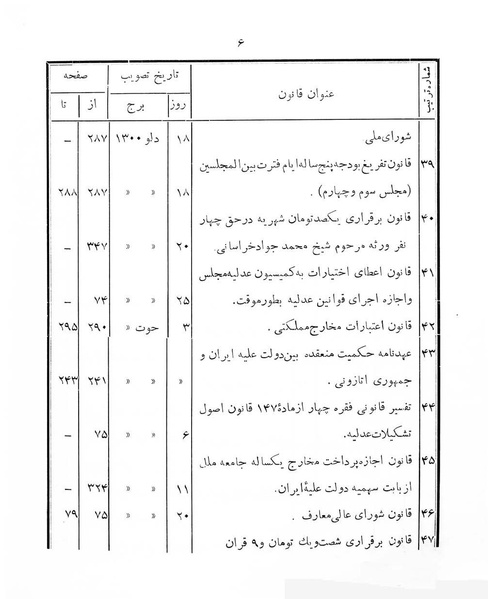 ۶
شماره ترتیب عنوان قانون تاریخ تصویب صفحه
روز برج از تا
شورای ملی ۱۸ دلو ۱۳۰۰ ۲۸۷ –
۳۹ قانون تفریغ بودجه پنج ساله ایام فترت بین المجلسین
(مجلس سوم و چهارم) . ۱۸ » » ۲۸۷ ۲۸۸
۴۰ قانون برقراری یکصد تومان شهریه در حق چهار
نفر ورثه مرحوم شیخ محمد جواد خراسانی ۲۰ » » ۳۴۷ –
۴۱ قانون اعطای اختیارات به کمیسیون عدلیه مجلس
و اجازه اجرای قوانین عدلیه بطور موقت. ۲۵ » » ۷۴ –
۴۲ قانون اعتبارات مخارج مملکتی . ۳ حوت » ۲۹۰ ۲۹۵
۴۳ عهدنامه حکمیت منعقده بین دولت علیه ایران و
جمهوری اتازونی . » » » ۲۴۱ ۲۴۳
۴۴ تفسیر قانونی فقره چهار از مادهٔ ۱۴۷ قانون اصول
تشکیلات عدلیه. ۶ » » ۷۵ –
۴۵ قانون اجازه پرداخت مخارج یکساله جامعه ملل
از بابت سهمیه دولت علیهٔ ایران. ۱۱ » » ۳۲۴ –
۴۶ قانون شورای عالی معارف . ۲۰ » » ۷۵ ۷۹
۴۷ قانون برقراری شصت و یك تومان و ۹ قران